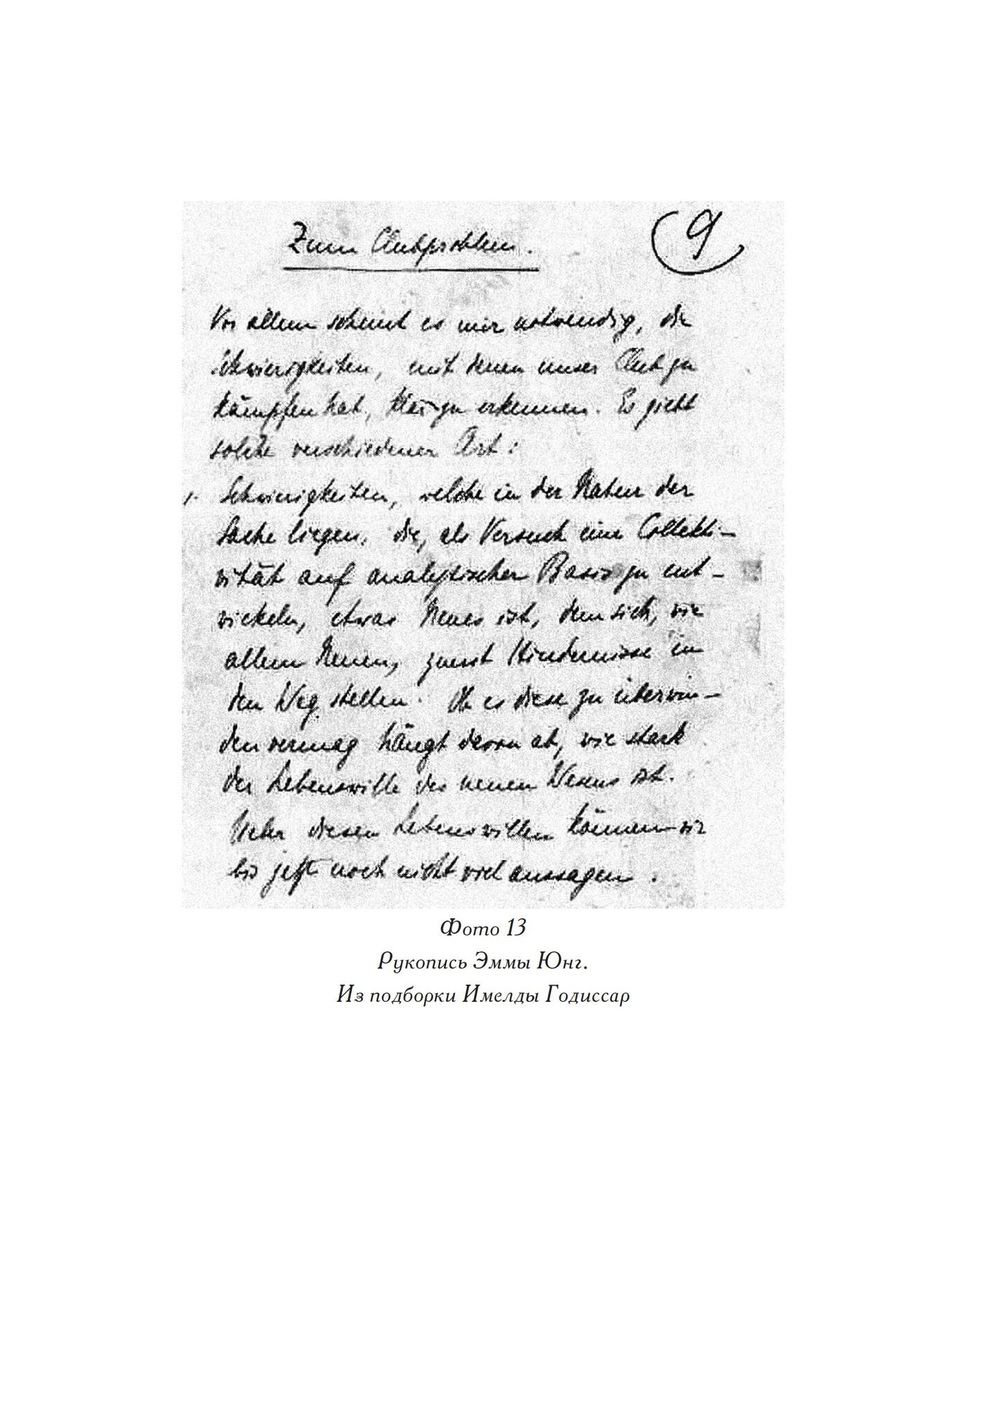 Zum Clubproblem.
9
Vor allem scheint es mir notwendig, die
Schwierigkeiten, mit denen unser Club zu
kämpfen hat, klar zu erkennen. Es giebt
solche verschiedener Art:
1. Schwierigkeiten, welche in der Natur der
Sache liegen, die, als Versuch eine Collekti-
vität auf analytischer Basis zu ent-
wickeln, etwas Neues ist, dem sich, wie
allem Neuen, zuerst Hindernisse in
den Weg stellen. Ob es diese zu überwin-
den vermag hängt davon ab, wie stark
der Lebenswille des neuen Wesens ist.
Ueber diesen Lebenswillen können wir
bis jetzt noch nicht viel aussagen.
Фото 13
Рукопись Эммы Юнг.
Из подборки Имелды Годиссар